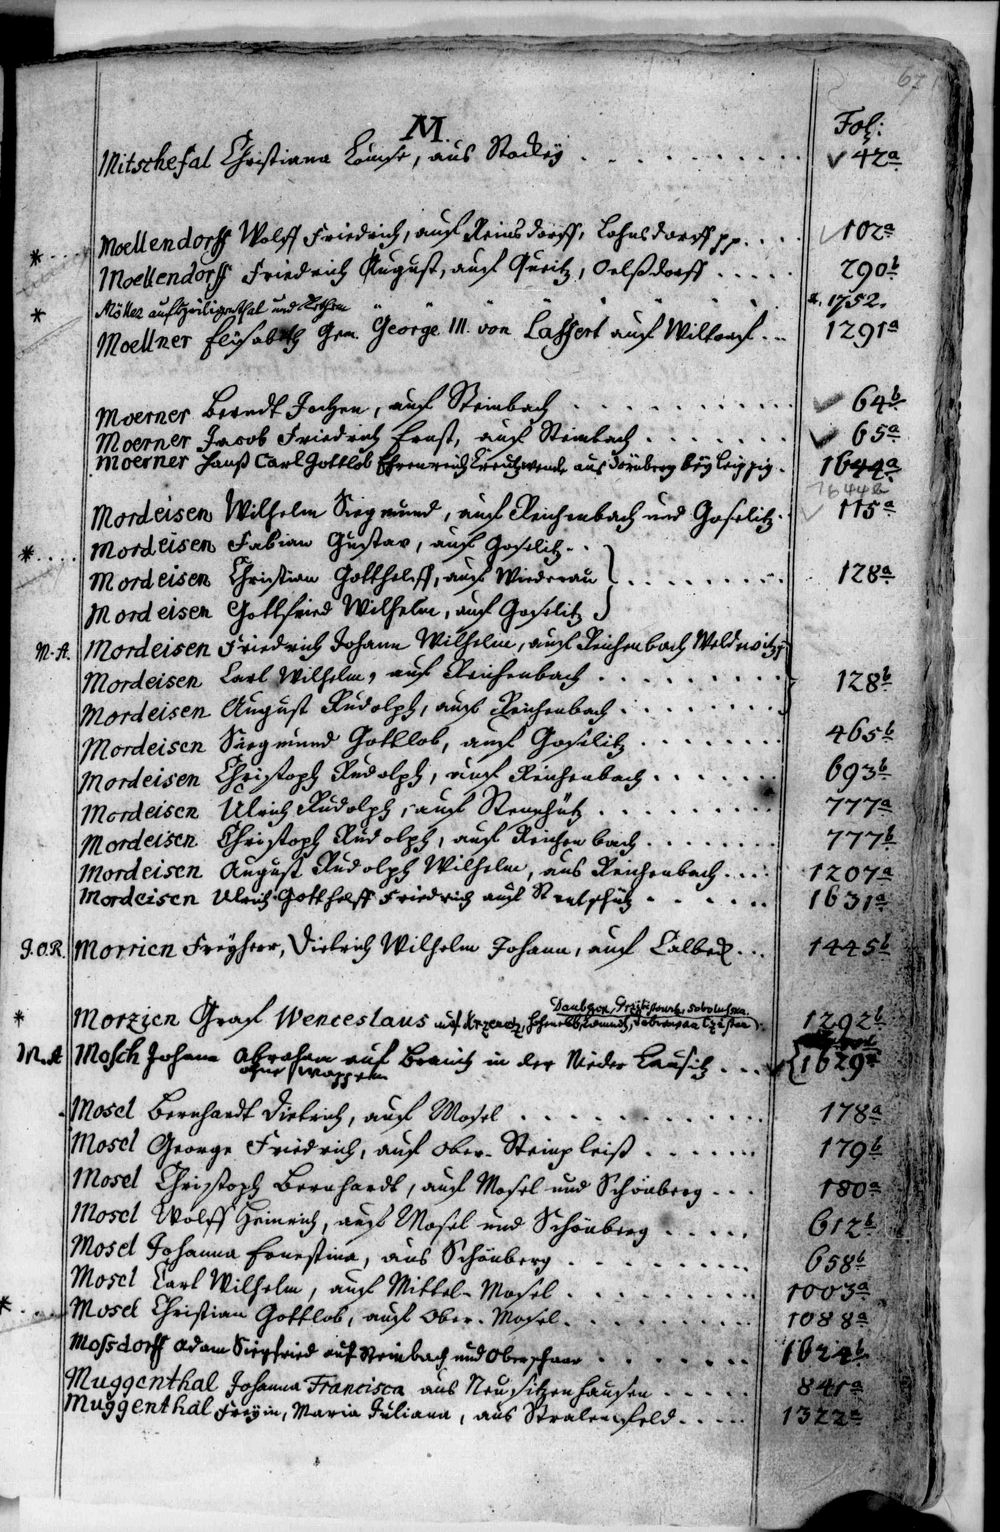 67
M.
Fol:
Mitschefal Christiana Louise, aus Stockey . . . . . . . . . . ✓ 42a
* . . . . Moellendorff Wolff Friedrich, auf Reinsdorff, Lohnsdorff pp. . . . ✓ 102a
Moellendorff Friedrich August, auf Queitz, Oelßdorff . . . . . 290b
* Möller auf Heiligenthal und Rothen a. 1752.
Moellner Elisabeth Gem. George III. von Laffert auf . . . 1291a
Moerner Berndt Jochen, auf Steinbach . . . . . . . . . . ✓ 64b
Moerner Jacob Friedrich Ernst, auf Steinbach . . . . . . . ✓ 65a
Moerner Hanß Carl Gottlob Ehrenreich aus Dörnberg bey Leipzig . 1644a
1644b
Mordeisen Wilhelm Siegmund, auf Reichenbach und Goselitz . ✓ 115a
* . . . . Mordeisen Fabian Gustav, auf Goselitz . .
Mordeisen Christian Gotthelff, auf Wiederau } . . . . . . . . 128a
Mordeisen Gottfried Wilhelm, auf Goselitz
M. A. Mordeisen Friedrich Johann Wilhelm, auf Reichenbach
Mordeisen Carl Wilhelm, auf Reichenbach . . . . . . . . . } 128b
Mordeisen August Rudolph, auf Reichenbach . . . . . . . .
Mordeisen Siegmund Gottlob, auf Goselitz . . . . . . . . 465b
Mordeisen Christoph Rudolph, auf Reichenbach . . . . . . 693b
Mordeisen Ulrich Rudolph, auf . . . . . . . . . 777a
Mordeisen Christoph Rudolph, auf Reichenbach . . . . . . . 777b
Mordeisen August Rudolph Wilhelm, aus Reichenbach . . . . 1207a
Mordeisen Ulrich Gotthelff Friedrich auf . . . . . . . 1631a
J. O. R. Morrien Freyherr, Dietrich Wilhelm Johann, auf Calbeck . . . 1445b
* Morzien Graf Wenceslaus auf 1292b
M. A. Mosch Johann Abraham auf Braunitz in der Nieder Lausitz . . . { 1629a
ohne Wappen
Mosel Bernhardt Dietrich, auf Mosel . . . . . . . . . . . 178a
Mosel George Friedrich, auf Ober-Steinpleiß . . . . . . . 179b
Mosel Christoph Bernhardt, auf Mosel und Schönberg . . . 180a
Mosel Wolff Heinrich, auf Mosel und Schönberg . . . . . 612b
Mosel Johanna Ernestina, aus Schönberg . . . . . . . . . 658b
Mosel Carl Wilhelm, auf Mittel-Mosel . . . . . . . . . . 1003a
* . . . Mosel Christian Gottlob, auf Ober-Mosel . . . . . . . . . 1088a
Mossdorff Adam Siegfried auf Steinbach und Oberschaar . . . . . . . . 1624b
Muggenthal Johanna Francisca aus Neusitzenhausen . . . . . 841a
Muggenthal Freyin, Maria Juliana, aus Stralenfeld . . . . . 1322a